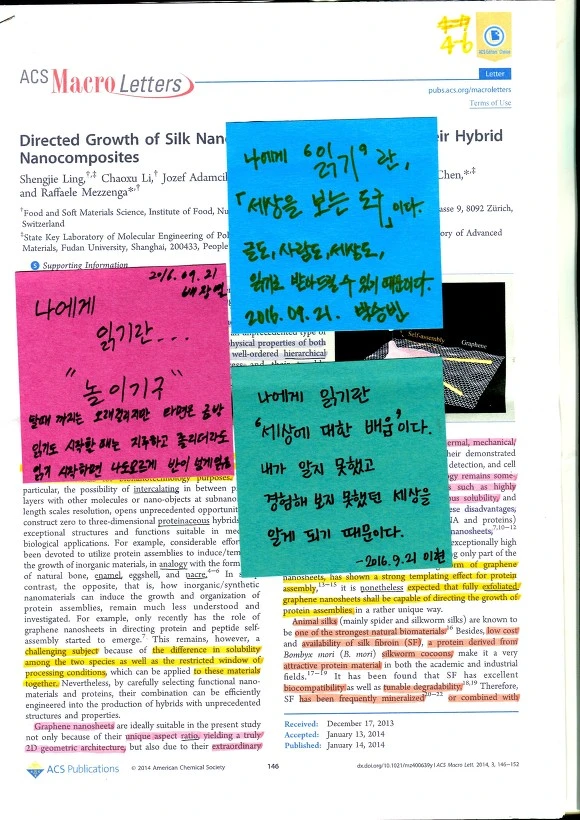 4-6
ACS Macro Letters
Letter
pubs.acs.org/macroletters
Terms of Use
Directed Growth of Silk Nan
eir Hybrid
Nanocomposites
Shengjie Ling,†,‡ Chaoxu Li,† Jozef Adamcik
Chen,*,‡
and Raffaele Mezzenga*,†
†Food and Soft Materials Science, Institute of Food, Nu
asse 9, 8092 Zürich,
Switzerland
‡State Key Laboratory of Molecular Engineering of Pol
ory of Advanced
Materials, Fudan University, Shanghai, 200433, People
Supporting Information
나에게 "읽기"란,
「세상을 보는 도구」이다.
글도, 사람도, 세상도,
읽기로 받아드릴 수 있기 때문이다.
2016. 09. 21. 박승빈
2016.09.21
나에게
읽기란...
"놀이기구"
탈때 까지는 오래걸리지만 타면은 금방
읽기도 시작할 때는 지루하고 졸리더라도
읽기 시작하면
나에게 읽기란
'세상에 대한 배움'이다.
내가 알지 못했고
경험해 보지 못했던 세상을
알게 되기 때문이다.
-2016.9.21 이현
physical properties of both
well-ordered hierarchical
Self-assembly
Graphene
particular, the possibility of intercalating in between p
layers with other molecules or nano-objects at subnano
length scales resolution, opens unprecedented opportuni
construct zero to three-dimensional proteinaceous hybrids
exceptional structures and functions suitable in me
biological applications. For example, considerable effor
been devoted to utilize protein assemblies to induce/tem
the growth of inorganic materials, in analogy with the form
of natural bone, enamel, eggshell, and nacre.4−6 In s
contrast, the opposite, that is, how inorganic/synthetic
nanomaterials can induce the growth and organization of
protein assemblies, remain much less understood and
investigated. For example, only recently has the role of
graphene nanosheets in directing protein and peptide self-
assembly started to emerge.7 This remains, however, a
challenging subject because of the difference in solubility
among the two species as well as the restricted window of
processing conditions, which can be applied to these materials
together. Nevertheless, by carefully selecting functional nano-
materials and proteins, their combination can be efficiently
engineered into the production of hybrids with unprecedented
structures and properties.
Graphene nanosheets are ideally suitable in the present study
not only because of their unique aspect ratio, yielding a truly
2D geometric architecture, but also due to their extraordinary
ermal, mechanical/
heir demonstrated
detection, and cell
ogy remains some-
such as highly
ous solubility, and
ese disadvantages,
NA and proteins)
nanosheets,7,10−12
exceptionally high
ing only part of the
orm of graphene
nanosheets, has shown a strong templating effect for protein
assembly,13−15 it is nonetheless expected that fully exfoliated
graphene nanosheets shall be capable of directing the growth of
protein assemblies in a rather unique way.
Animal silks (mainly spider and silkworm silks) are known to
be one of the strongest natural biomaterials.16 Besides, low cost
and availability of silk fibroin (SF), a protein derived from
Bombyx mori (B. mori) silkworm cocoons, make it a very
attractive protein material in both the academic and industrial
fields.17−19 It has been found that SF has excellent
biocompatibility as well as tunable degradability.18,19 Therefore,
SF has been frequently mineralized20−22 or combined with
Received: December 17, 2013
Accepted: January 13, 2014
Published: January 14, 2014
ACS Publications
© 2014 American Chemical Society
146
dx.doi.org/10.1021/mz400639y | ACS Macro Lett. 2014, 3, 146−152